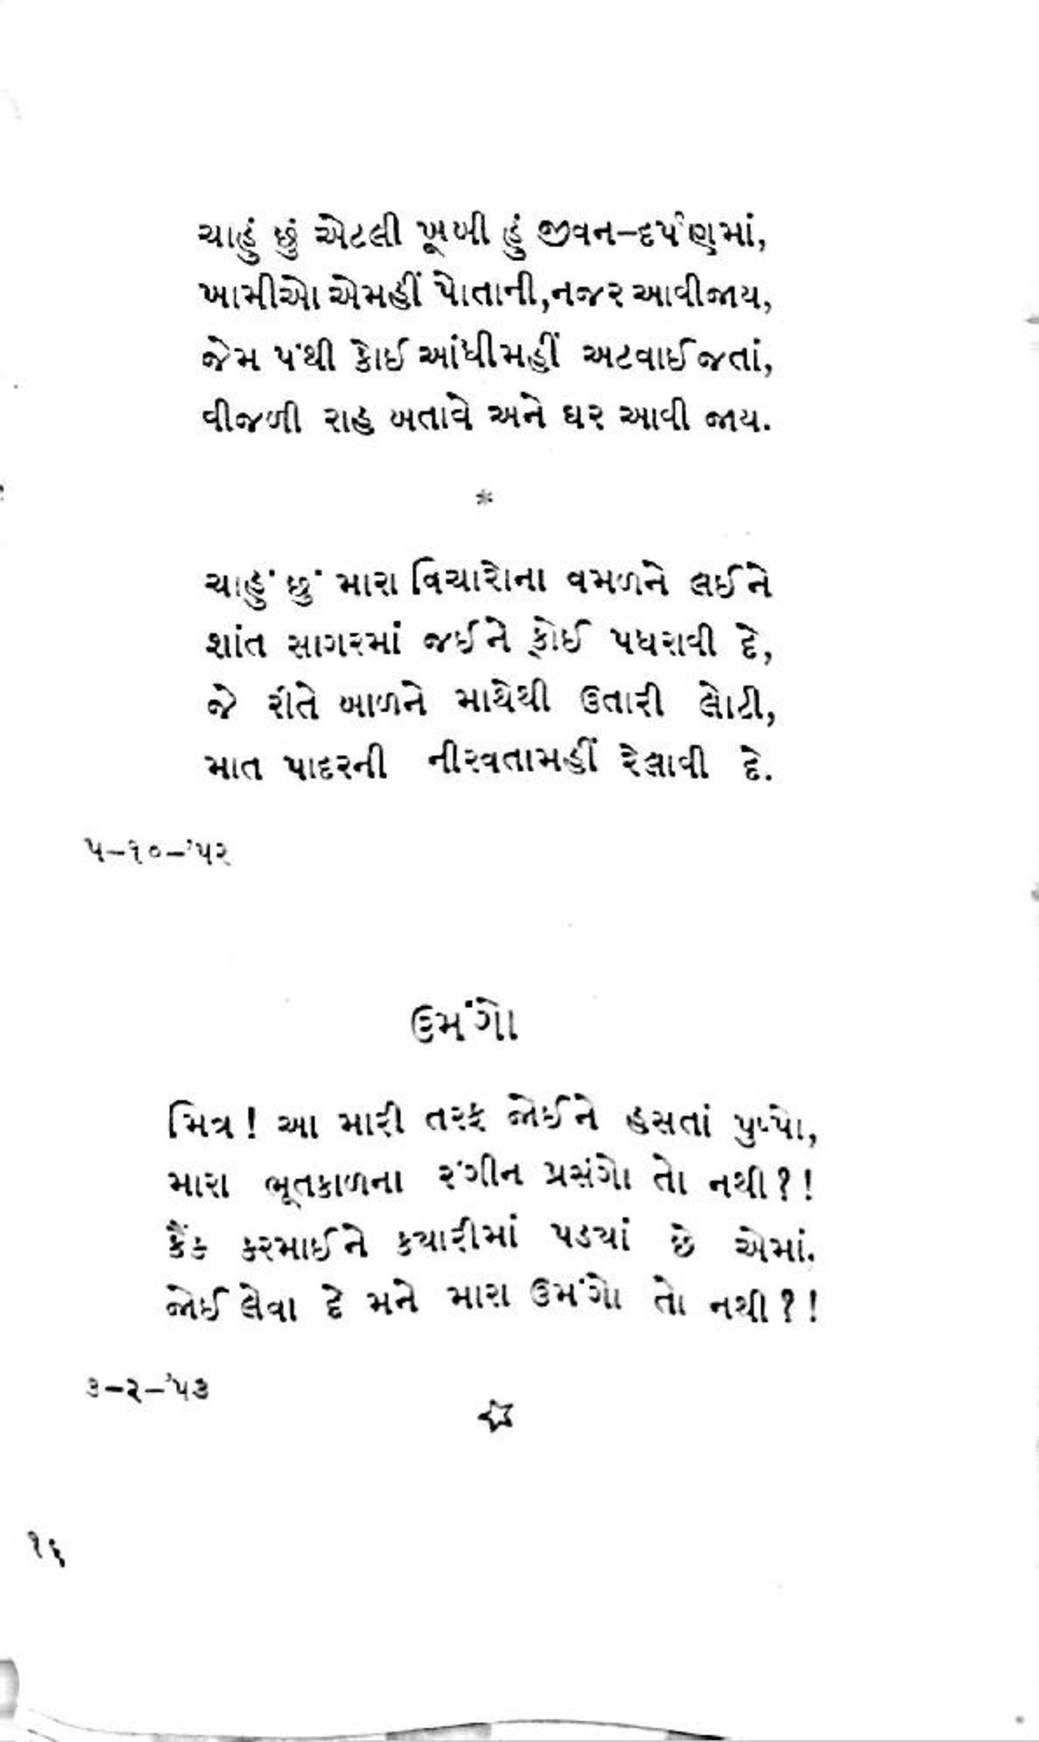 ચાહું છું એટલી ખૂબી હું જીવન–દર્પણમાં,
ખામીઓ એમહીં પોતાની,નજર આવીજાય,
જેમ પંથી કોઈ આંધીમહીં અટવાઈ જતાં,
વીજળી રાહ બતાવે અને ઘર આવી જાય.
*
ચાહું છું મારા વિચારોના વમળને લઈને
શાંત સાગરમાં જઈને કોઈ પધરાવી દે,
જે રીતે બાળને માથેથી ઉતારી લોટી,
માત પાદરની નીરવતામહીં રેલાવી દે.
૫–૧૦–'૫૨
ઉમંગો
મિત્ર ! આ મારી તરફ જોઈને હસતાં પુષ્પો,
મારા ભૂતકાળના રંગીન પ્રસંગો તો નથી ? !
કૈંક કરમાઈને ક્યારીમાં પડ્યાં છે એમાં.
જોઈ લેવા દે મને મારા ઉમંગો તો નથી ? !
૩–૨–'૫૩
☆
૧૬